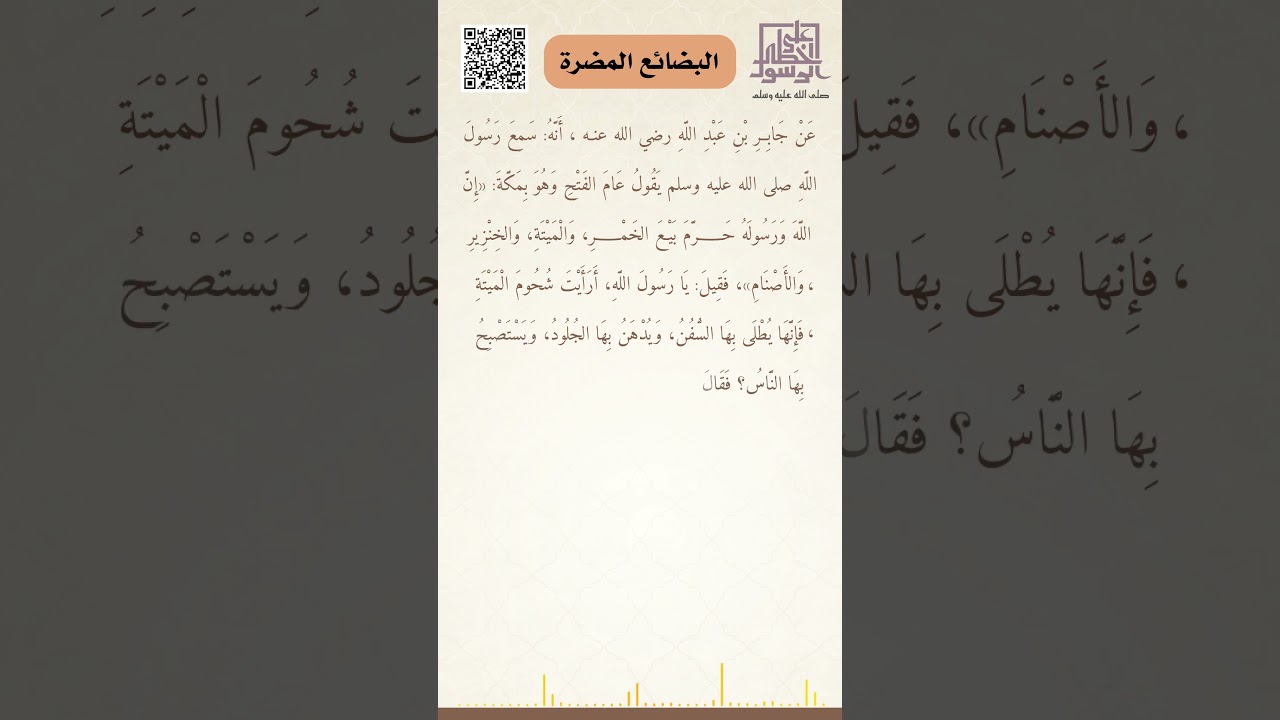 على خطى الرسول
صلى الله عليه وسلم
البضائع المضرة
عَنْ جَابِرِ بْنِ عَبْدِ اللَّهِ رضي الله عنه ، أَنَّهُ: سَمِعَ رَسُولَ
اللَّهِ صلى الله عليه وسلم يَقُولُ عَامَ الفَتْحِ وَهُوَ بِمَكَّةَ: «إِنَّ
اللَّهَ وَرَسُولَهُ حَـــرَّمَ بَيْعَ الخَمْـــرِ، وَالْمَيْتَةِ، وَالخِنْزِيرِ
، وَالأَصْنَامِ»، فَقِيلَ: يَا رَسُولَ اللَّهِ، أَرَأَيْتَ شُحُومَ الْمَيْتَةِ
، فَإِنَّهَا يُطْلَى بِهَا السُّفُنُ، وَيُدْهَنُ بِهَا الجُلُودُ، وَيَسْتَصْبِحُ
بِهَا النَّاسُ؟ فَقَالَ